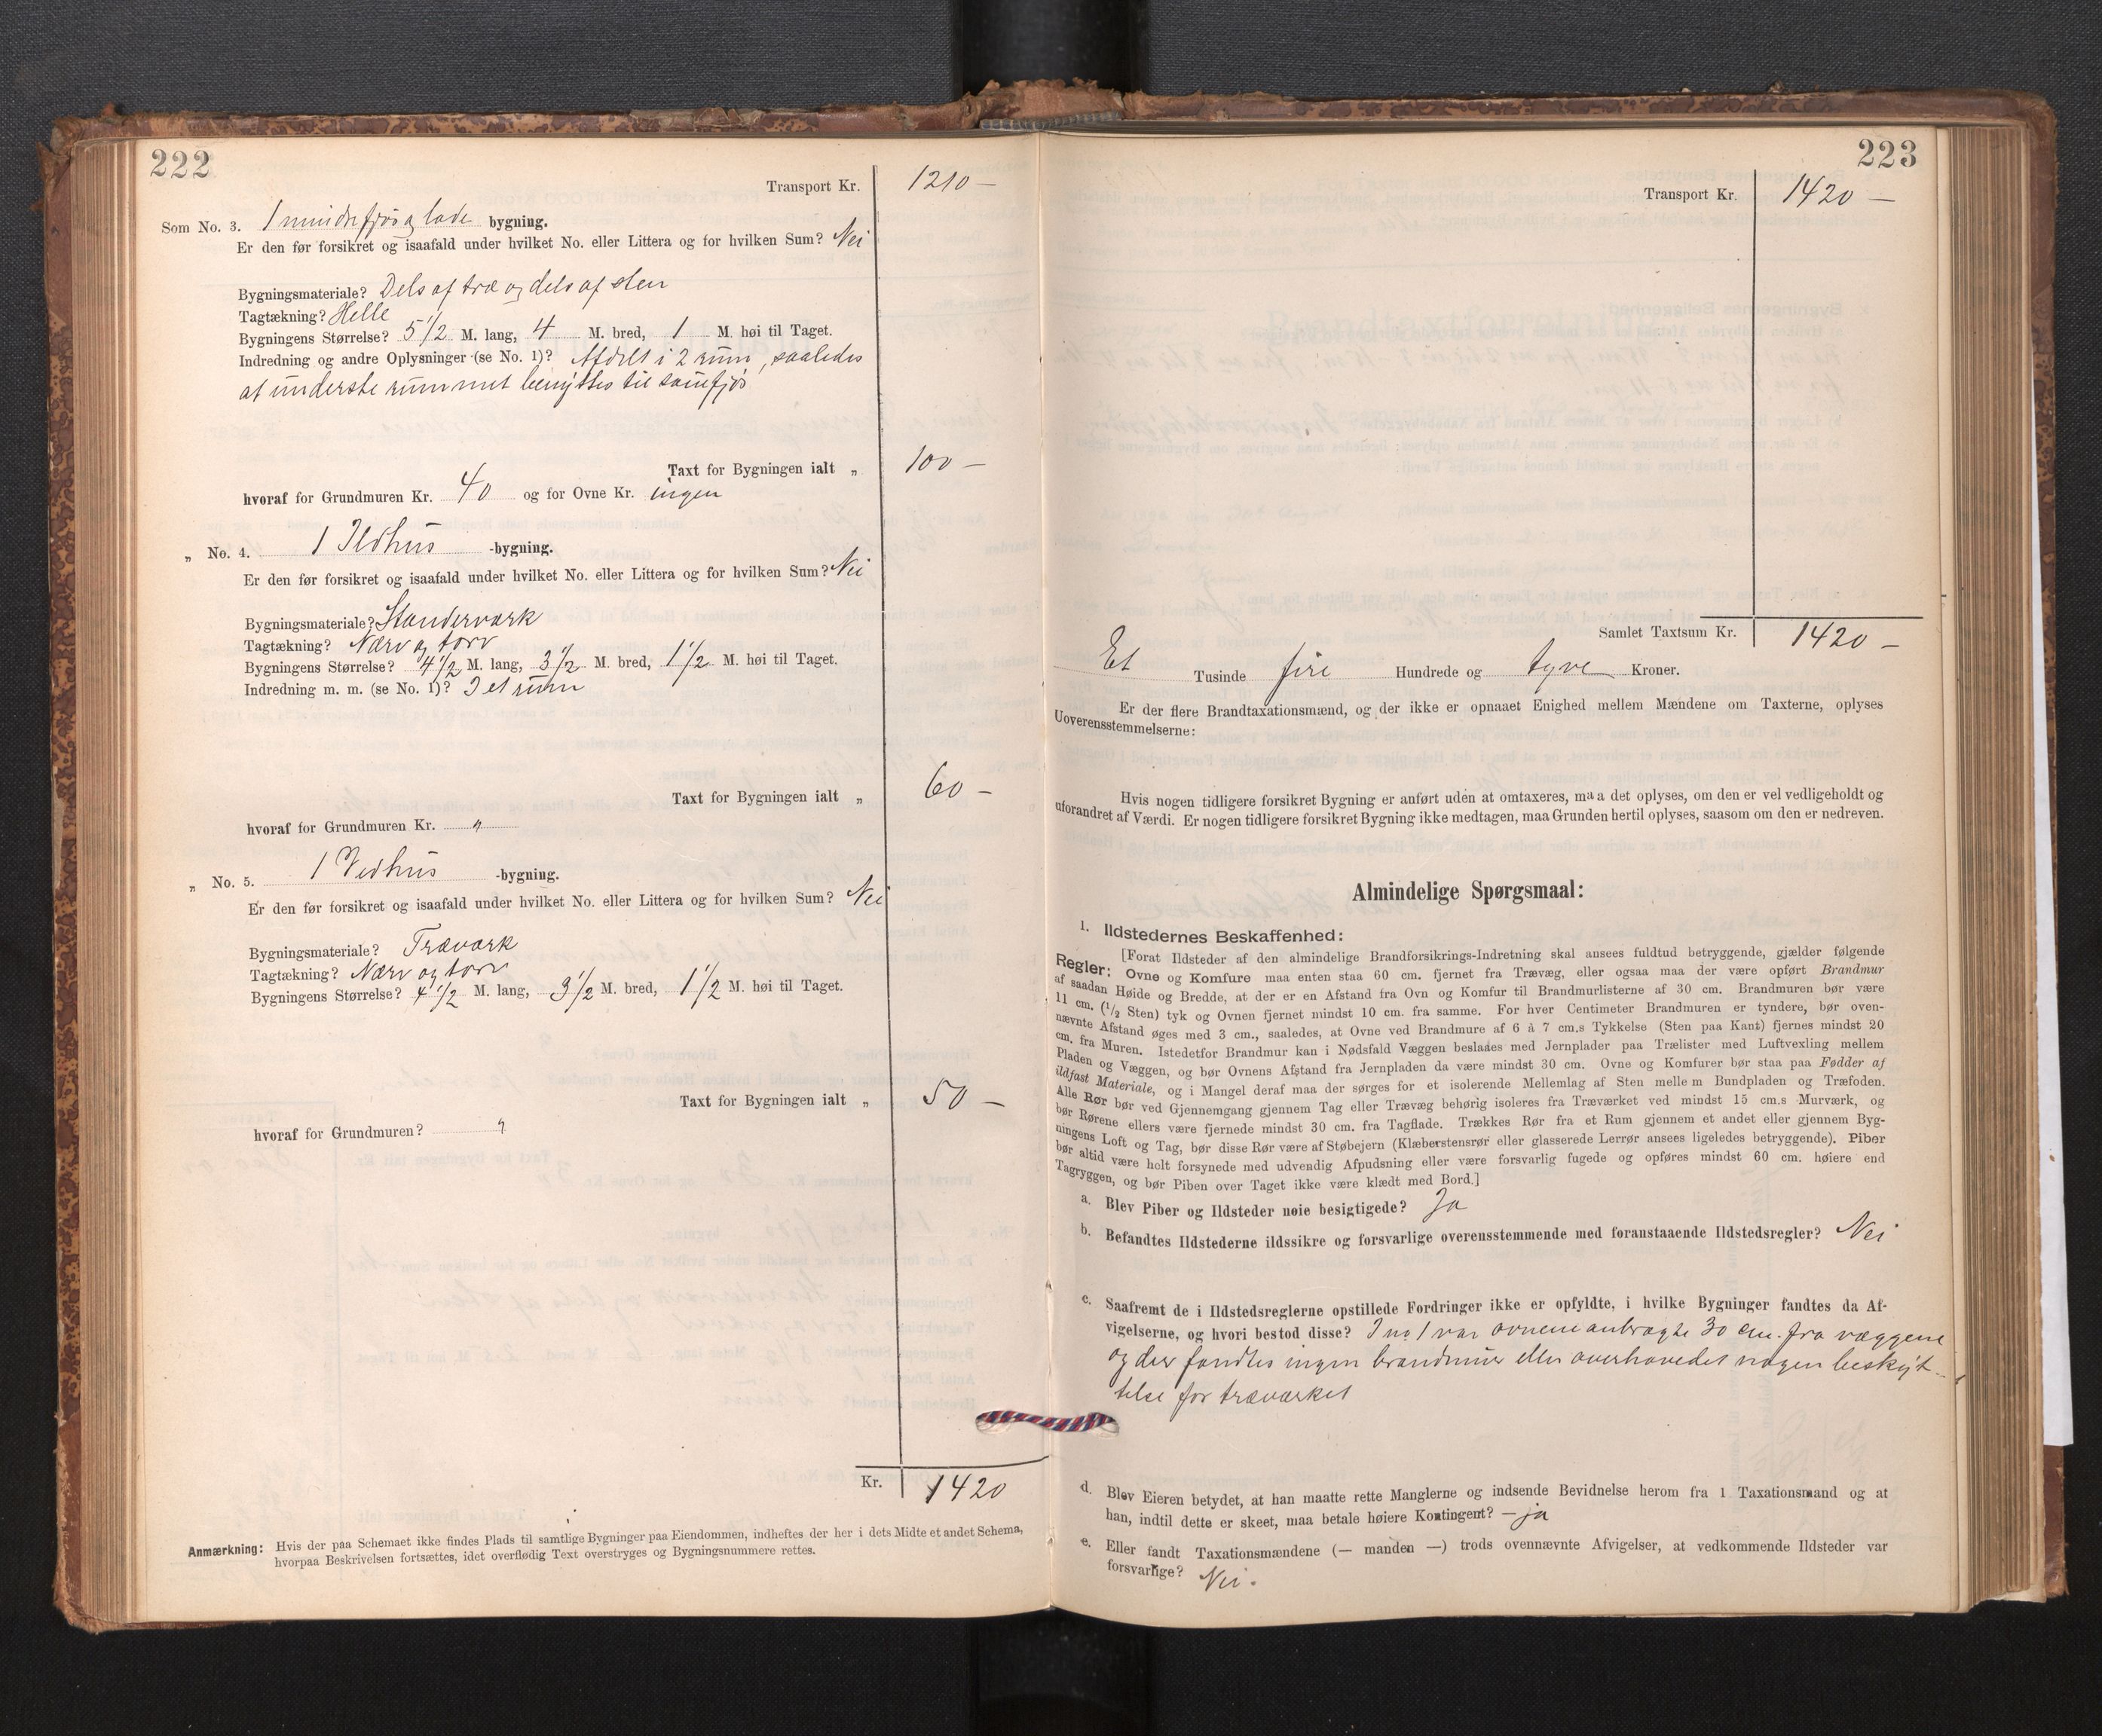 222
Transport Kr. 1210 —
Som No. 3. 1 mindre fjøs og lade bygning.
Er den før forsikret og isaafald under hvilket No. eller Littera og for hvilken Sum? Nei
Bygningsmateriale? Dels af træ og dels af sten
Tagtækning? Helle
Bygningens Størrelse? 5 1/2 M. lang, 4 M. bred, 1 M. høi til Taget.
Indredning og andre Oplysninger (se No. 1)? Afdelt i 2 rum, saaledes
at underste rummet benyttes til sauefjøs
Taxt for Bygningen ialt „ 100 —
hvoraf for Grundmuren Kr. 40 og for Ovne Kr. ingen
„ No. 4. 1 Ildhus -bygning.
Er den før forsikret og isaafald under hvilket No. eller Littera og for hvilken Sum? Nei
Bygningsmateriale? Standerværk
Tagtækning? Næver og torv
Bygningens Størrelse? 4 1/2 M. lang, 3 1/2 M. bred, 1 1/2 M. høi til Taget.
Indredning m. m. (se No. 1)? I et rum
Taxt for Bygningen ialt „ 60 —
hvoraf for Grundmuren Kr. "
„ No. 5. 1 Vedhus -bygning.
Er den før forsikret og isaafald under hvilket No. eller Littera og for hvilken Sum? Nei
Bygningsmateriale? Træværk
Tagtækning? Næver og torv
Bygningens Størrelse? 4 1/2 M. lang, 3 1/2 M. bred, 1 1/2 M. høi til Taget.
Taxt for Bygningen ialt „ 50 —
hvoraf for Grundmuren? "
Kr. 1420
Anmærkning: Hvis der paa Schemaet ikke findes Plads til samtlige Bygninger paa Eiendommen, indheftes der her i dets Midte et andet Schema,
hvorpaa Beskrivelsen fortsættes, idet overflødig Text overstryges og Bygningsnummere rettes.
223
Transport Kr. 1420 —
Samlet Taxtsum Kr. 1420 —
Et Tusinde fire Hundrede og tyve Kroner.
Er der flere Brandtaxationsmænd, og der ikke er opnaaet Enighed mellem Mændene om Taxterne, oplyses
Uoverensstemmelserne:
Hvis nogen tidligere forsikret Bygning er anført uden at omtaxeres, maa det oplyses, om den er vel vedligeholdt og
uforandret af Værdi. Er nogen tidligere forsikret Bygning ikke medtagen, maa Grunden hertil oplyses, saasom om den er nedreven.
Almindelige Spørgsmaal:
1. Ildstedernes Beskaffenhed:
[Forat Ildsteder af den almindelige Brandforsikrings-Indretning skal ansees fuldtud betryggende, gjælder følgende
Regler: Ovne og Komfure maa enten staa 60 cm. fjernet fra Trævæg, eller ogsaa maa der være opført Brandmur
af saadan Høide og Bredde, at der er en Afstand fra Ovn og Komfur til Brandmurlisterne af 30 cm. Brandmuren bør være
11 cm. (1/2 Sten) tyk og Ovnen fjernet mindst 10 cm. fra samme. For hver Centimeter Brandmuren er tyndere, bør oven-
nævnte Afstand øges med 3 cm., saaledes, at Ovne ved Brandmure af 6 à 7 cm.s Tykkelse (Sten paa Kant) fjernes mindst 20
cm. fra Muren. Istedetfor Brandmur kan i Nødsfald Væggen beslaaes med Jernplader paa Trælister med Luftvexling mellem
Pladen og Væggen, og bør Ovnens Afstand fra Jernpladen da være mindst 30 cm. Ovne og Komfurer bør staa paa Fødder af
ildfast Materiale, og i Mangel deraf maa der sørges for et isolerende Mellemlag af Sten mellem Bundpladen og Træfoden.
Alle Rør bør ved Gjennemgang gjennem Tag eller Trævæg behørig isoleres fra Træværket ved mindst 15 cm.s Murværk, og
bør Rørene ellers være fjernede mindst 30 cm. fra Tagflade. Trækkes Rør fra et Rum gjennem et andet eller gjennem Byg-
ningens Loft og Tag, bør disse Rør være af Støbejern (Klæberstensrør eller glasserede Lerrør ansees ligeledes betryggende). Piber
bør altid være helt forsynede med udvendig Afpudsning eller være forsvarlig fugede og opføres mindst 60 cm. høiere end
Tagryggen, og bør Piben over Taget ikke være klædt med Bord.]
a. Blev Piber og Ildsteder nøie besigtigede? Ja
b. Befandtes Ildstederne ildssikre og forsvarlige overensstemmende med foranstaaende Ildstedsregler? Nei
c. Saafremt de i Ildstedsreglerne opstillede Fordringer ikke er opfyldte, i hvilke Bygninger fandtes da Af-
vigelserne, og hvori bestod disse? I no 1 var ovnene anbragte 30 cm. fra væggene
og der fandtes ingen brandmur eller overhovedet nogen beskyt-
telse for træværket
d. Blev Eieren betydet, at han maatte rette Manglerne og indsende Bevidnelse herom fra 1 Taxationsmand og at
han, indtil dette er skeet, maa betale høiere Kontingent? — ja
e. Eller fandt Taxationsmændene (— manden —) trods ovennævnte Afvigelser, at vedkommende Ildsteder var
forsvarlige? Nei.